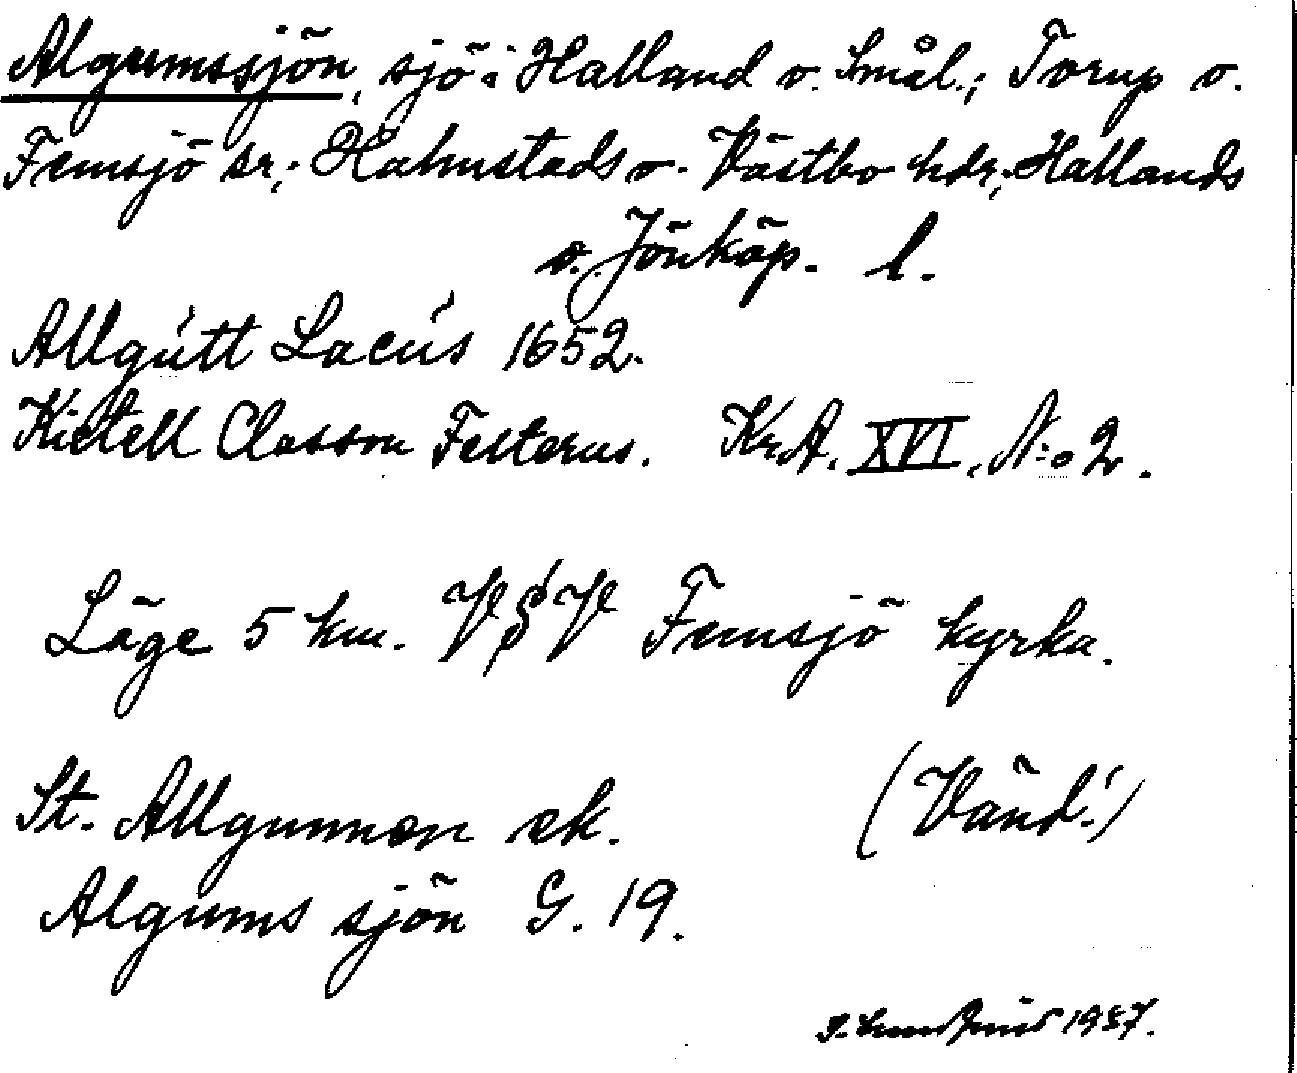 Algumssjön, sjö i Halland o. Smål.; Torup o.
Femsjö sr.; Halmstads o. Västbo hdr.; Hallands
o. Jönköp. l.
Allgútt Lacús 1652.
Kietell Classon Felterus. KrA. XVI. N:o 2.
Läge 5 km. V§V Femsjö kyrka.
St. Allgunnen ek.
(Vänd!)
Algums sjön G. 19.
1937.